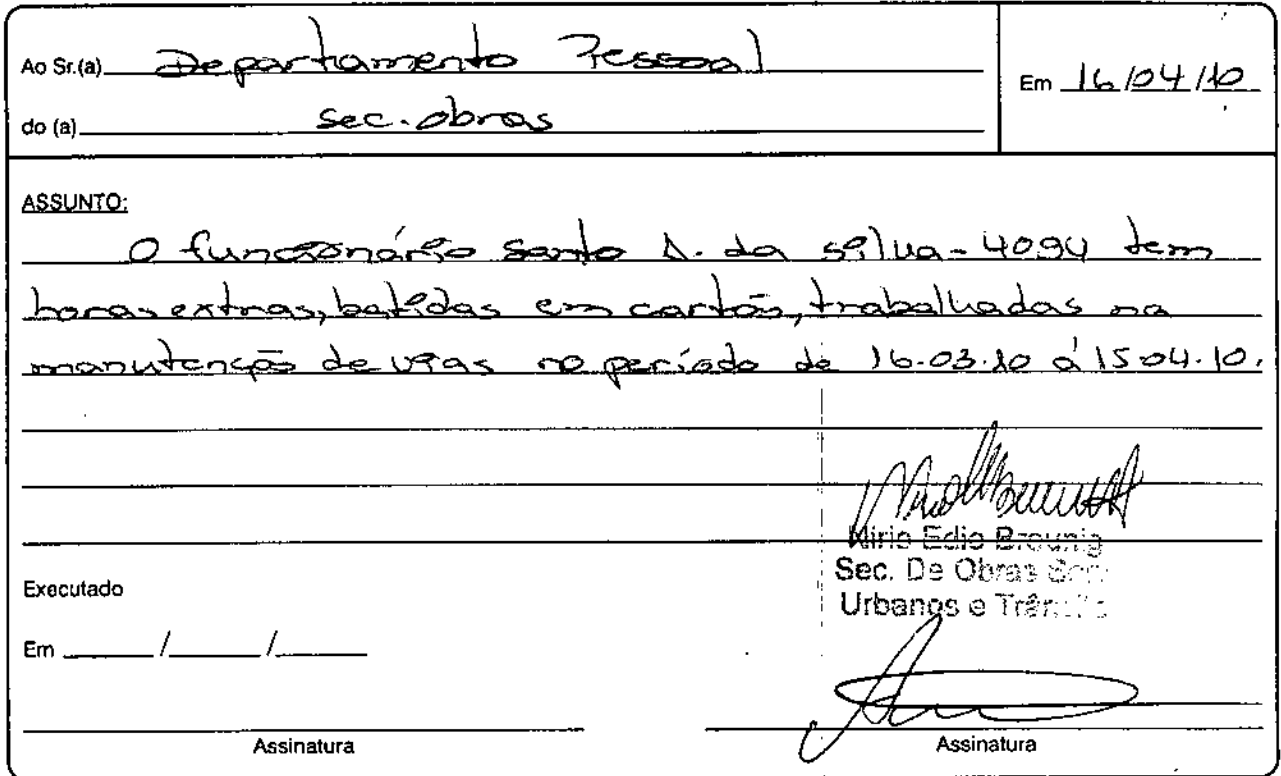 Ao Sr.(a) Departamento Pessoal
Em 16/04/10
do (a) Sec. obras
ASSUNTO:
O funcionário Santo A. da Silva - 4094 tem
horas extras, batidas em cartão, trabalhadas na
manutenção de vias no período de 16.03.10 á 15.04.10.
Nirio Edio Breunig
Sec. De Obras
Urbanos e Trânsito
Executado
Em ____/____/____
Assinatura
Assinatura